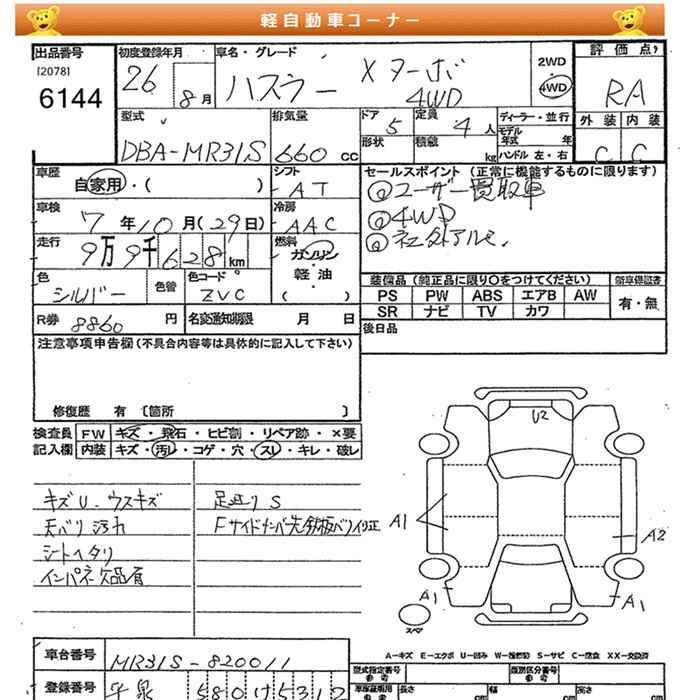 軽自動車コーナー
出品番号 初度登録年月 車名・グレード 評価点
[2078] 6144
26 8月
ハスラー Xターボ 4WD
2WD
4WD
RA
外装 内装
C C
型式 排気量 ドア 定員 ディーラー・並行
DBA-MR31S 660 cc 5 4人
形状 積載 kg モデル年式 年
ハンドル 左・右
車歴 シフト セールスポイント (正常に機能するものに限ります)
自家用・( ) AT
@ユーザー買取車
車検 冷房
7年10月(29日) AAC
@4WD
@社外アルミ.
走行 燃料
9万9千628km
ガソリン
軽油
( )
色 色替 色コード
シルバー ZVC
装備品(純正品に限り○をつけてください) 新車保証書
PS PW ABS エアB AW 有・無
SR ナビ TV カワ
R券 8860 円 名変通知期限 月 日
後日品
注意事項申告欄(不具合内容等は具体的に記入して下さい)
修復歴 有 〔箇所 〕
検査員 FW キズ・飛石・ヒビ割・リペア跡・×要
記入欄 内装 キズ・汚レ・コゲ・穴・スレ・キレ・破レ
キズU.ウスキズ 足廻りS
天バリ汚れ
シートヘタリ
インパネ欠品有
U2
A1
A2
A1
A1
スペア
A-キズ E-エクボ U-凹み W-補修跡 S-サビ C-腐食 XX-交換済
車台番号 MR31S-820011
型式指定番号 参考 類別区分番号 参考
登録番号 580
長さ cm 幅 cm 高さ cm